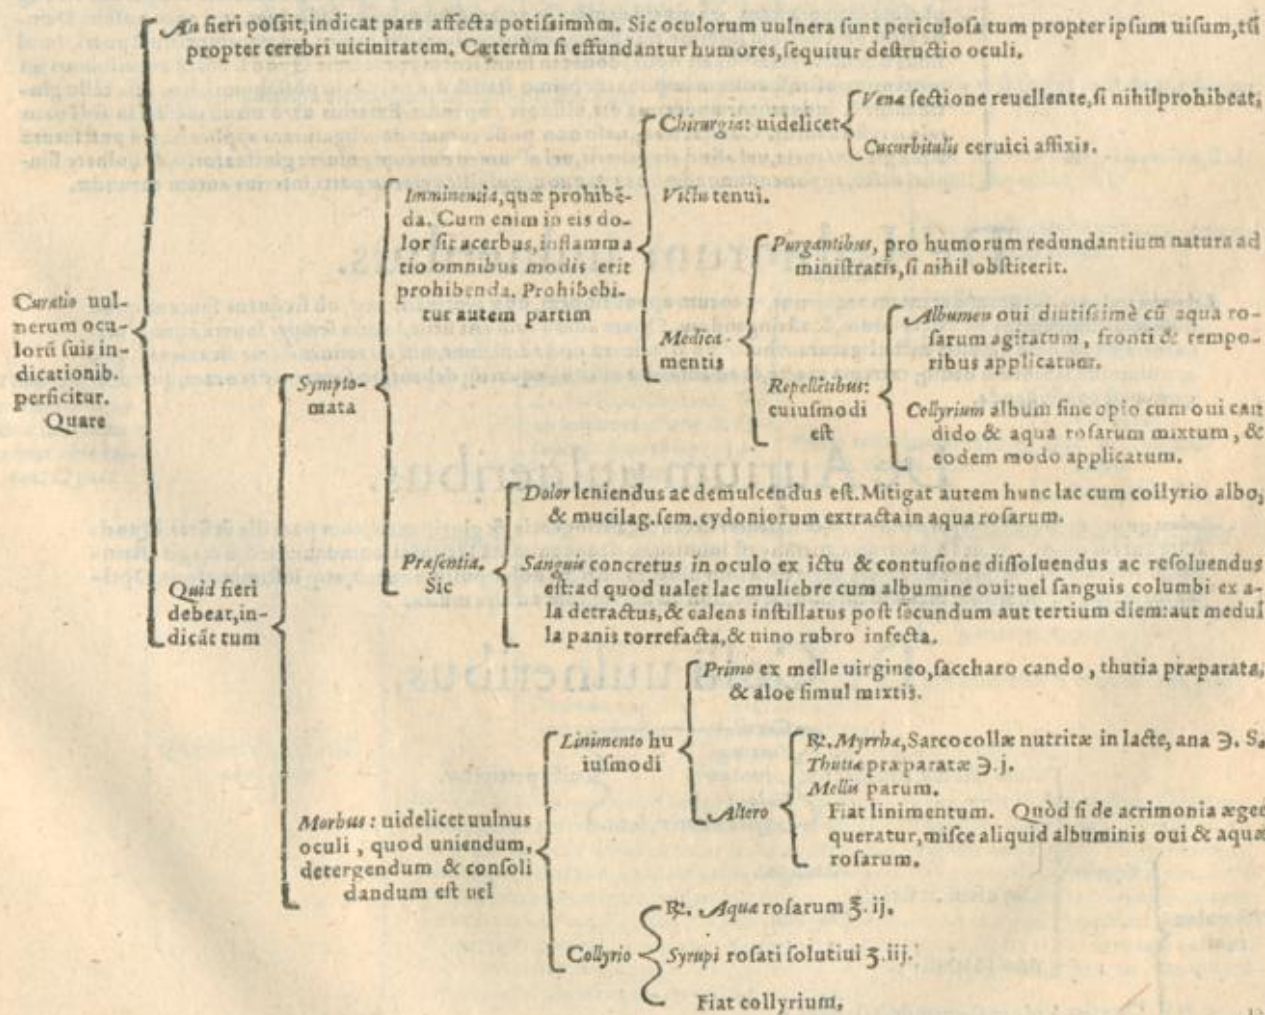 An fieri poſsit, indicat pars affecta potiſsimùm. Sic oculorum uulnera ſunt periculoſa tum propter ipſum uiſum, tũ
propter cerebri uicinitatem. Cæterùm ſi effundantur humores, ſequitur deſtructio oculi.
Curatio uul-
nerum ocu-
lorũ ſuis in-
dicationib.
perficitur.
Quare
Quid fieri
debeat, in-
dicãt tum
Sympto-
mata
Imminentia, quæ prohibẽ-
da. Cum enim in eis do-
lor ſit acerbus, inflamma
tio omnibus modis erit
prohibenda. Prohibebi-
tur autem partim
Chirurgia: uidelicet
Venæ ſectione reuellente, ſi nihil prohibeat,
Cucurbitulis ceruici affixis.
Victu tenui.
Medica-
mentis
Purgantibus, pro humorum redundantium natura ad
miniſtratis, ſi nihil obſtiterit.
Repellẽtibus:
cuiuſmodi
eſt
Albumen oui diutiſsimè cũ aqua ro-
ſarum agitatum, fronti & tempo-
ribus applicatum.
Collyrium album ſine opio cum oui can
dido & aqua roſarum mixtum, &
eodem modo applicatum.
Præſentia.
Sic
Dolor leniendus ac demulcendus eſt. Mitigat autem hunc lac cum collyrio albo,
& mucilag. ſem. cydoniorum extracta in aqua roſarum.
Sanguis concretus in oculo ex ictu & contuſione diſſoluendus ac reſoluendus
eſt: ad quod ualet lac muliebre cum albumine oui: uel ſanguis columbi ex a-
la detractus, & calens inſtillatus poſt ſecundum aut tertium diem: aut medul
la panis torrefacta, & uino rubro infecta.
Morbus: uidelicet uulnus
oculi, quod uniendum,
detergendum & conſoli
dandum eſt uel
Linimento hu
iuſmodi
Primo ex melle uirgineo, ſaccharo cando, thutia præparata,
& aloe ſimul mixtis.
Altero
℞. Myrrhæ, Sarcocollæ nutritæ in lacte, ana ℈. S.
Thutiæ præparatæ ℈. j.
Mellis parum.
Fiat linimentum. Quòd ſi de acrimonia æger
queratur, miſce aliquid albuminis oui & aquæ
roſarum.
Collyrio
℞. Aquæ roſarum ℥. ij.
Syrupi roſati ſolutiui ʒ. iij.
Fiat collyrium.